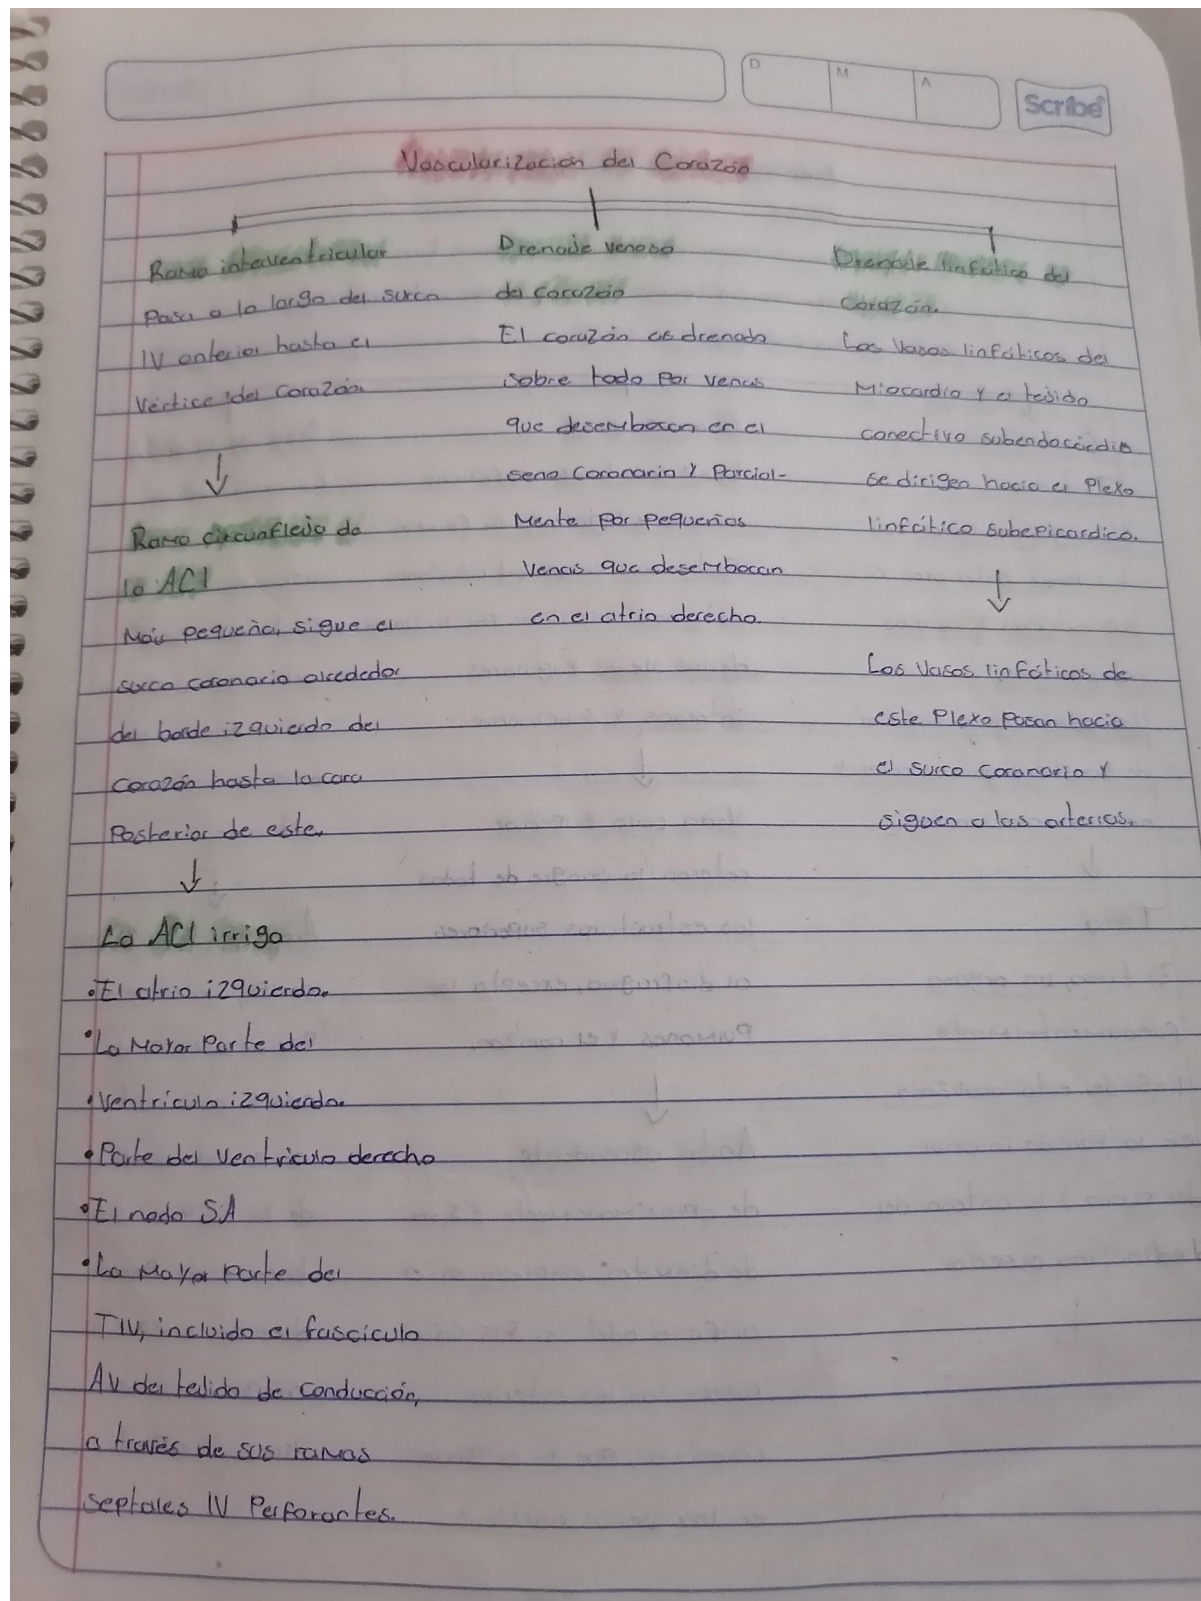 D
M
A
Scribe
Vascularización del Corazón
Rama interventricular
Pasa a lo largo del surco
IV anterior hasta el
Vértice del Corazón.
↓
Rama circunfleja de
la ACI
Más pequeña, sigue el
surco coronario alrededor
del borde izquierdo del
corazón hasta la cara
Posterior de este.
↓
La ACI irriga
•El atrio izquierdo.
•La Mayor Parte del
•Ventrículo izquierdo.
•Parte del Ventrículo derecho
•El nodo SA
•La Mayor Parte del
TIV, incluido el fascículo
AV del tejido de conducción,
a través de sus ramas
septales IV Perforantes.
Drenaje venoso
del corazón
El corazón es drenado
sobre todo por venas
que desembocan en el
seno Coronario y Parcial-
Mente por pequeñas
Venas que desembocan
en el atrio derecho.
Drenaje linfático del
Corazón.
Los Vasos linfáticos del
Miocardio y el tejido
conectivo subendocárdico
se dirigen hacia el Plexo
linfático subepicardico.
↓
Los Vasos linfáticos de
este Plexo Pasan hacia
el surco Coronario y
siguen a las arterias.